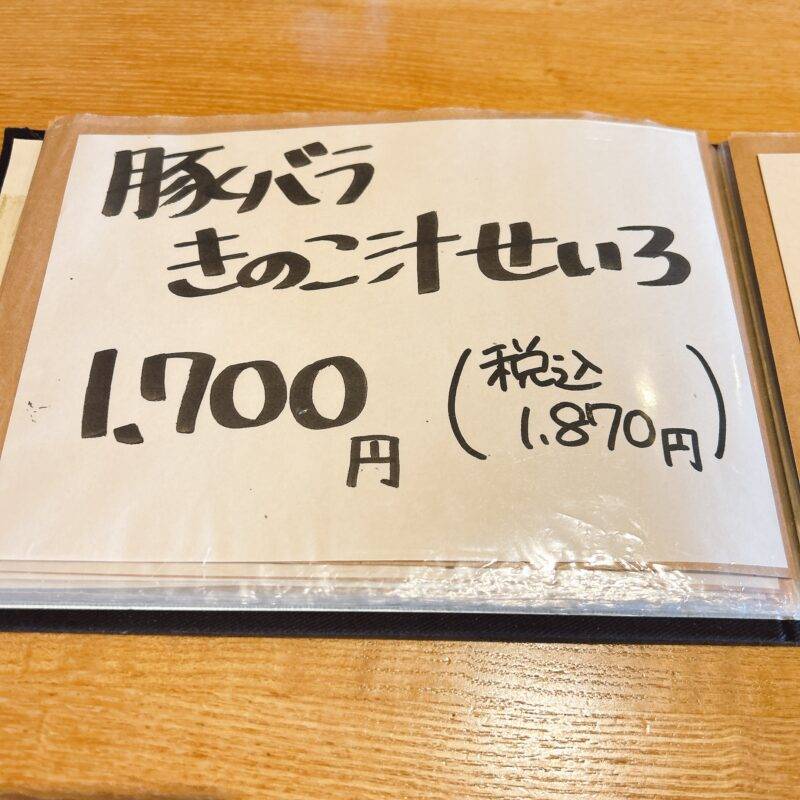 豚バラ
きのこ汁せいろ
1.700円
(税込
1.870円)